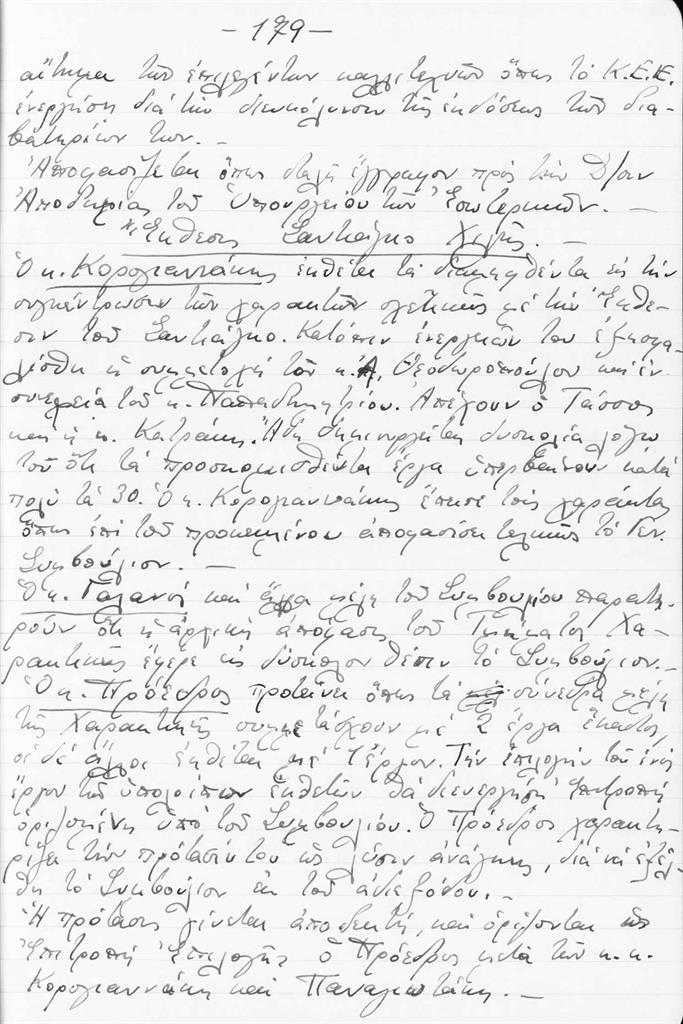 - 179 -
αἴτημα τῶν ἐπιλεγέντων καλλιτεχνῶν ὅπως τὸ Κ.Ε.Ε.
ἐνεργήσῃ διὰ τὴν διευκόλυνσιν τῆς ἐκδόσεως τῶν δια-
βατηρίων των. -
Ἀποφασίζεται ὅπως σταλῇ ἔγγραφον πρὸς τὴν Δ/σιν
Ἀποδημίας τοῦ Ὑπουργείου τῶν Ἐσωτερικῶν. -
Ἔκθεσις Σαντιάγκο Χιλῆς. -
Ὁ κ. Κορογιαννάκης ἐκθέτει τὰ διαμειφθέντα εἰς τὴν
συγκέντρωσιν τῶν χαρακτῶν σχετικῶς μὲ τὴν Ἔκθε-
σιν τοῦ Σαντιάγκο. Κατόπιν ἐνεργειῶν του ἐξησφα-
λίσθη ἡ συμμετοχὴ τοῦ κ. Α. Θεοδωροπούλου καὶ ἐν
συνεχείᾳ τοῦ κ. Παπαδημητρίου. Ἀπέχουν ὁ Τάσσος
καὶ ἡ κ. Κατράκη. Ἤδη δημιουργεῖται δυσκολία λόγῳ
τοῦ ὅτι τὰ προσκομισθέντα ἔργα ὑπερβαίνουν κατὰ
πολὺ τὰ 30. Ὁ κ. Κορογιαννάκης ἔπεισε τοὺς χαράκτας
ὅπως ἐπὶ τοῦ προκειμένου ἀποφασίσει τελικῶς τὸ Γεν.
Συμβούλιον. -
Ὁ κ. Γαλανὸς καὶ ἄλλα μέλη τοῦ Συμβουλίου παρατη-
ροῦν ὅτι ἡ ἀρχικὴ ἀπόφασις τοῦ Τμήματος Χα-
ρακτικῆς ἔφερε εἰς δύσκολον θέσιν τὸ Συμβούλιον. -
Ὁ κ. Πρόεδρος προτείνει ὅπως τὰ σύνεδρα μέλη
τῆς Χαρακτικῆς συμμετάσχουν μὲ 2 ἔργα ἕκαστος,
οἱ δὲ ἄλλοι ἐκθέται μὲ 1 ἔργον. Τὴν ἐπιλογὴν τοῦ ἑνὸς
ἔργου τῶν ὑπολοίπων ἐκθετῶν θὰ διενεργήσῃ Ἐπιτροπὴ
ὁριζομένη ὑπὸ τοῦ Συμβουλίου. Ὁ Πρόεδρος χαρακτη-
ρίζει τὴν πρότασίν του ὡς λύσιν ἀνάγκης, διὰ νὰ ἐξέλ-
θῃ τὸ Συμβούλιον ἐκ τοῦ ἀδιεξόδου. -
Ἡ πρότασις γίνεται ἀποδεκτή, καὶ ὁρίζονται ὡς
Ἐπιτροπὴ Ἐπιλογῆς ὁ Πρόεδρος μετὰ τῶν κ.κ.
Κορογιαννάκη καὶ Παναγιωτάκη. -